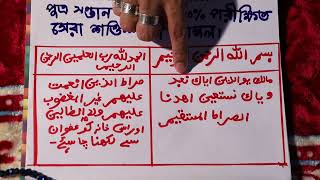 পুত্র সন্তান % পরীক্ষিত
সেরা
بسم الله الرحمن
الحمد لله رب العلمين الرحمن
الرحيم
مالك يوم الدين اياك نعبد
و ياك نستعين اهدنا
الصراط المستقيم
صراط الذين انعمت
عليهم غير المغضوب
عليهم ولا الضالين
اور اسی خانہ کو
سے لکھنا چاہیئے-